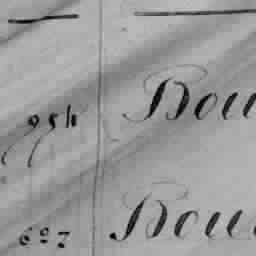 954 Bou
627 Bou